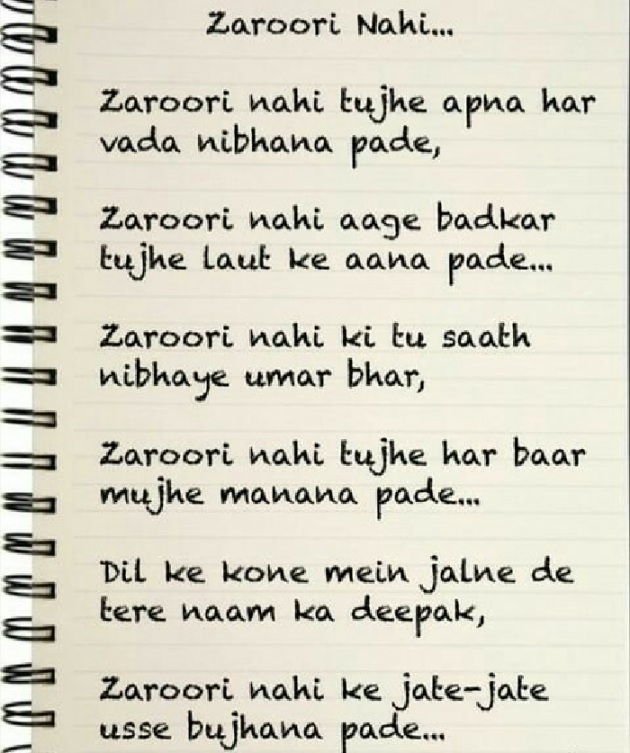 Zaroori Nahi...
Zaroori nahi tujhe apna har
vada nibhana pade,
Zaroori nahi aage badkar
tujhe laut ke aana pade...
Zaroori nahi ki tu saath
nibhaye umar bhar,
Zaroori nahi tujhe har baar
mujhe manana pade...
Dil ke kone mein jalne de
tere naam ka deepak,
Zaroori nahi ke jate-jate
usse bujhana pade...